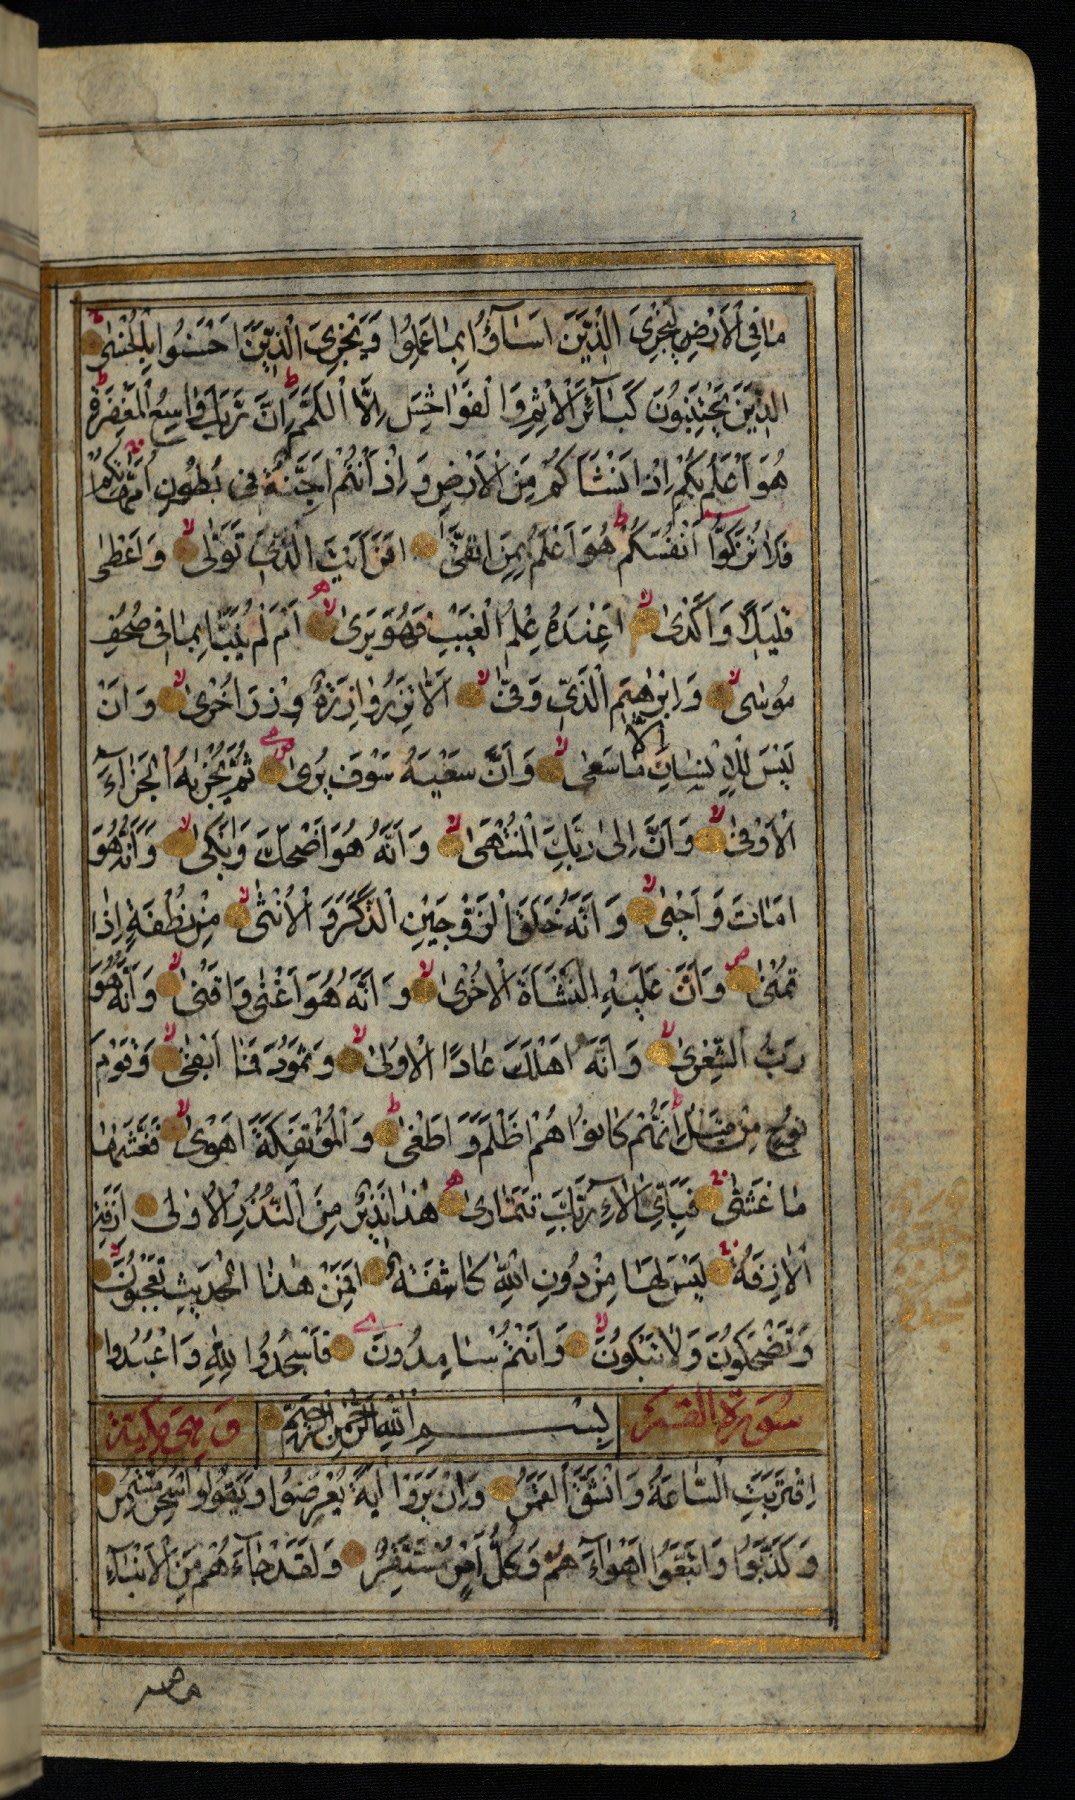 مَا فِي الْاَرْضِ لِيَجْزِيَ الَّذِينَ اَسَآؤُا بِمَا عَمِلُوا وَيَجْزِيَ الَّذِينَ اَحْسَنُوا بِالْحُسْنٰى ط
الَّذِينَ يَجْتَنِبُونَ كَبَآئِرَ الْاِثْمِ وَالْفَوَاحِشَ اِلَّا اللَّمَمَ ط اِنَّ رَبَّكَ وَاسِعُ الْمَغْفِرَةِ ط
هُوَ اَعْلَمُ بِكُمْ اِذْ اَنْشَاَكُمْ مِنَ الْاَرْضِ وَاِذْ اَنْتُمْ اَجِنَّةٌ فِي بُطُونِ اُمَّهَاتِكُمْ
فَلَا تُزَكُّوا اَنْفُسَكُمْ ط هُوَ اَعْلَمُ بِمَنِ اتَّقٰى اَفَرَاَيْتَ الَّذِي تَوَلّٰى لا وَاَعْطٰى
قَلِيلًا وَاَكْدٰى لا اَعِنْدَهُ عِلْمُ الْغَيْبِ فَهُوَ يَرٰى لا اَمْ لَمْ يُنَبَّأْ بِمَا فِي صُحُفِ
مُوسٰى لا وَاِبْرٰهِيمَ الَّذِي وَفّٰى لا اَلَّا تَزِرُ وَازِرَةٌ وِزْرَ اُخْرٰى لا وَاَنْ
لَيْسَ لِلْاِنْسَانِ اِلَّا مَا سَعٰى لا وَاَنَّ سَعْيَهُ سَوْفَ يُرٰى ثُمَّ يُجْزٰىهُ الْجَزَآءَ
الْاَوْفٰى لا وَاَنَّ اِلٰى رَبِّكَ الْمُنْتَهٰى لا وَاَنَّهُ هُوَ اَضْحَكَ وَاَبْكٰى لا وَاَنَّهُ هُوَ
اَمَاتَ وَاَحْيٰى لا وَاَنَّهُ خَلَقَ الزَّوْجَيْنِ الذَّكَرَ وَ الْاُنْثٰى لا مِنْ نُطْفَةٍ اِذَا
تُمْنٰى ص وَاَنَّ عَلَيْهِ النَّشْاَةَ الْاُخْرٰى لا وَاَنَّهُ هُوَ اَغْنٰى وَاَقْنٰى لا وَاَنَّهُ هُوَ
رَبُّ الشِّعْرٰى لا وَاَنَّهُ اَهْلَكَ عَادًا الْاُولٰى لا وَثَمُودَ فَمَا اَبْقٰى لا وَقَوْمَ
نُوحٍ مِنْ قَبْلُ ط اِنَّهُمْ كَانُوا هُمْ اَظْلَمَ وَ اَطْغٰى ط وَالْمُؤْتَفِكَةَ اَهْوٰى لا فَغَشّٰيهَا
مَا غَشّٰى فَبِاَيِّ اٰلَآءِ رَبِّكَ تَتَمَارٰى هٰذَا نَذِيرٌ مِنَ النُّذُرِ الْاُولٰى اَزِفَتِ
الْاٰزِفَةُ لَيْسَ لَهَا مِنْ دُونِ اللّٰهِ كَاشِفَةٌ اَفَمِنْ هٰذَا الْحَدِيثِ تَعْجَبُونَ لا
وَتَضْحَكُونَ وَلَا تَبْكُونَ لا وَاَنْتُمْ سَامِدُونَ فَاسْجُدُوا لِلّٰهِ وَاعْبُدُوا
سُورَةُ الْقَمَرِ بِسْمِ اللّٰهِ الرَّحْمٰنِ الرَّحِيمِ وَهِيَ مَكِّيَّةٌ
اِقْتَرَبَتِ السَّاعَةُ وَانْشَقَّ الْقَمَرُ وَاِنْ يَرَوْا اٰيَةً يُعْرِضُوا وَيَقُولُوا سِحْرٌ مُسْتَمِرٌّ
وَكَذَّبُوا وَاتَّبَعُوا اَهْوَآءَهُمْ وَكُلُّ اَمْرٍ مُسْتَقِرٌّ وَلَقَدْ جَآءَهُمْ مِنَ الْاَنْبَآءِ